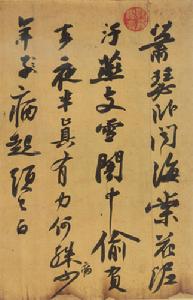 蕭瑟臥聞海棠花泥
汙燕支雪闇中偷負
去夜半真有力何殊病少
年子病起須已白